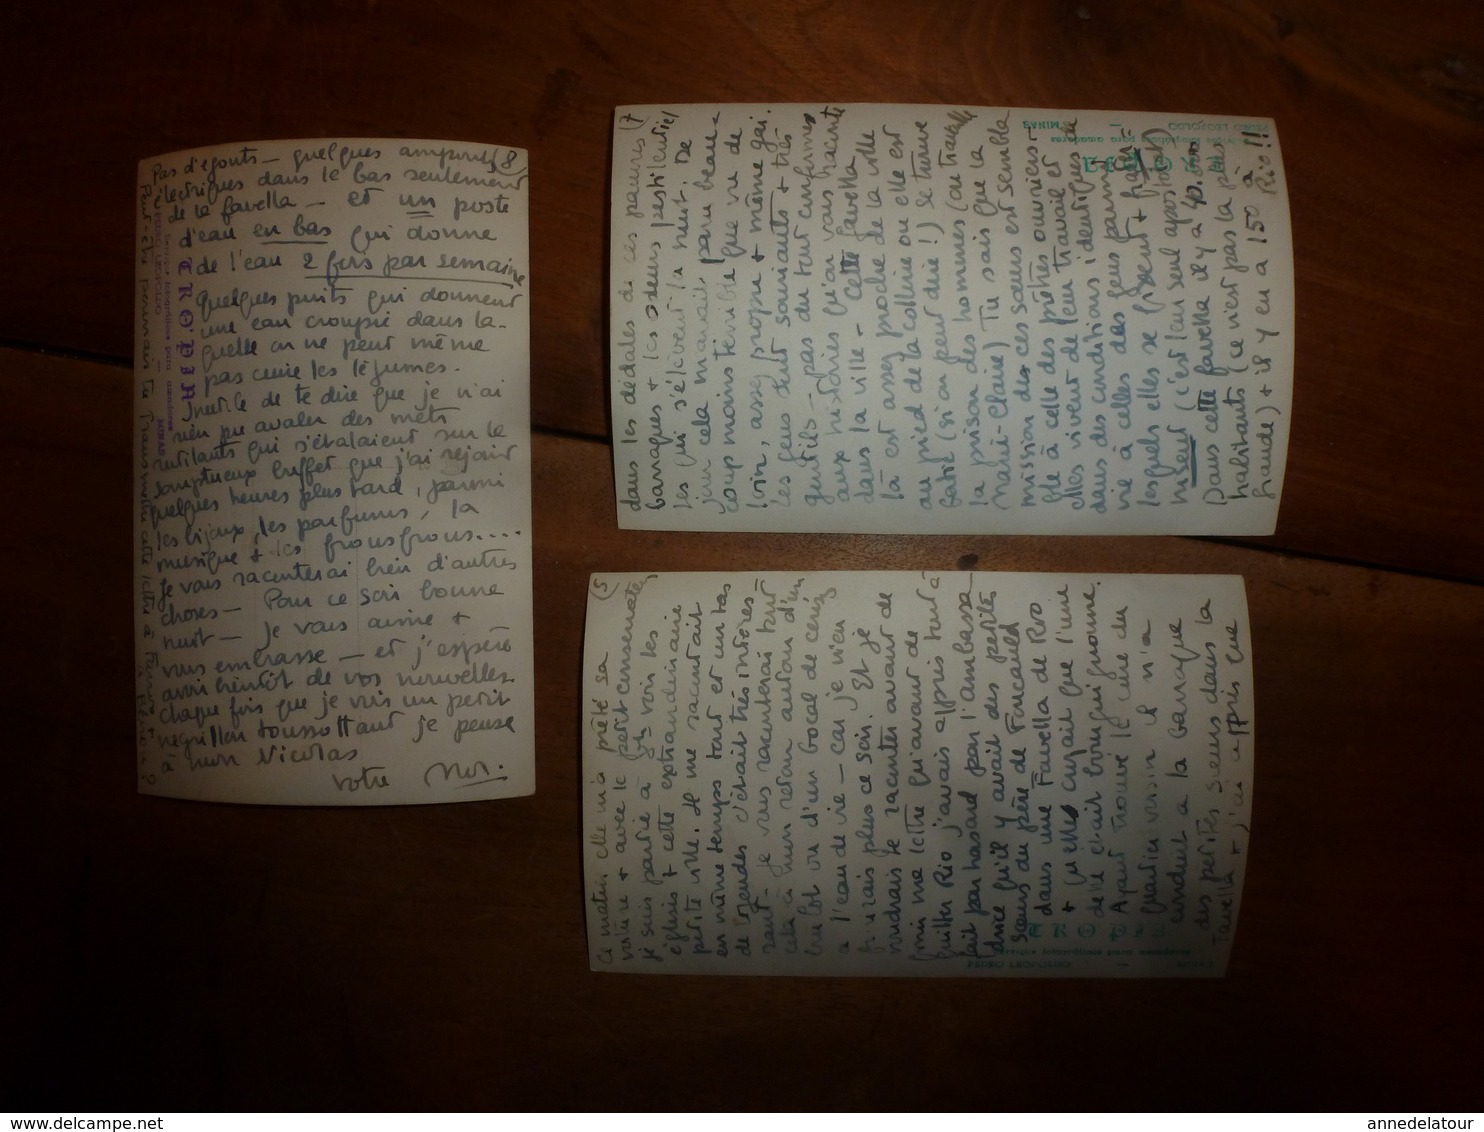 Pas d'egouts — quelques ampoules (8
électriques dans le bas seulement
de la favella — et un poste
d'eau en bas qui donne
de l'eau 2 fois par semaine
quelques puits qui donnent
une eau croupie dans la-
quelle on ne peut même
pas cuire les légumes.
Inutile de te dire que je n'ai
rien pu avaler des mets
rutilants qui s'étalaient sur le
somptueux buffet que j'ai rejoint
quelques heures plus tard, parmi
les bijoux, les parfums, la
musique + les frousfrous....
Je vous raconterai bien d'autres
choses — Pour ce soir bonne
nuit — Je vous aime +
vous embrasse — et j'espère
avoir bientôt de vos nouvelles
chaque fois que je vois un petit
négrillon toussottant je pense
à mon Nicolas
votre
Peut-être pourrais tu transmettre cette lettre à
PEDRO LEOPOLDO — MINAS
dans les dédales de ces pauvres (7
barraques + les odeurs pestilentiel
les qui s'élèvent la nuit. De
jour cela m'avait paru beau-
coup moins terrible que vu de
loin, assez propre + même gai.
Les gens sont souriants + très
gentils — pas du tout conformes
aux histoires qu'on vous raconte
dans la ville — Cette favella
là est assez proche de la ville
au pied de la colline où elle est
batie (si on peut dire !) se trouve
la prison des hommes (où travaille
Marie-Claire) Tu sais que la
mission de ces sœurs est sembla
ble à celle des prêtres ouvriers —
elles vivent de leur travail et
dans des conditions identiques de
vie à celles des gens parmi
lesquels elles se fixent +
(c'est leur seul apostolat)
Dans cette favella il y a 40.000
habitants (ce n'est pas la plus
grande) + il y en a 150 à Rio !!
PEDRO LEOPOLDO — MINAS
Ce matin elle m'a prêté sa (5
voiture + avec le petit conservateur
je suis partie à voir les
églises + cette extraordinaire
petite ville. Il me racontait
en même temps tout et un tas
de légendes c'était très intéres
sant — Je vous raconterai tout
cela à mon retour autour d'un
ou d'un bocal de cerises
à l'eau de vie — car je n'en
pourrais plus ce soir. Et je
voudrais te raconter avant de
finir ma lettre qu'avant de
quitter Rio j'avais appris tout à
fait par hasard par l'ambassa
drice qu'il y avait des petites
sœurs du père de Foucauld
dans une Favella de Rio
+ qu'elle croyait que l'une
d'elle était bourguignonne.
Ayant trouvé le curé du
quartier voisin il m'a
conduit à la barraque
des petites sœurs dans la
Favella + j'ai appris que
TROPIB
Serviço fotográfico para amadores
PEDRO LEOPOLDO — MINAS
annedelatour
www.delcampe.net